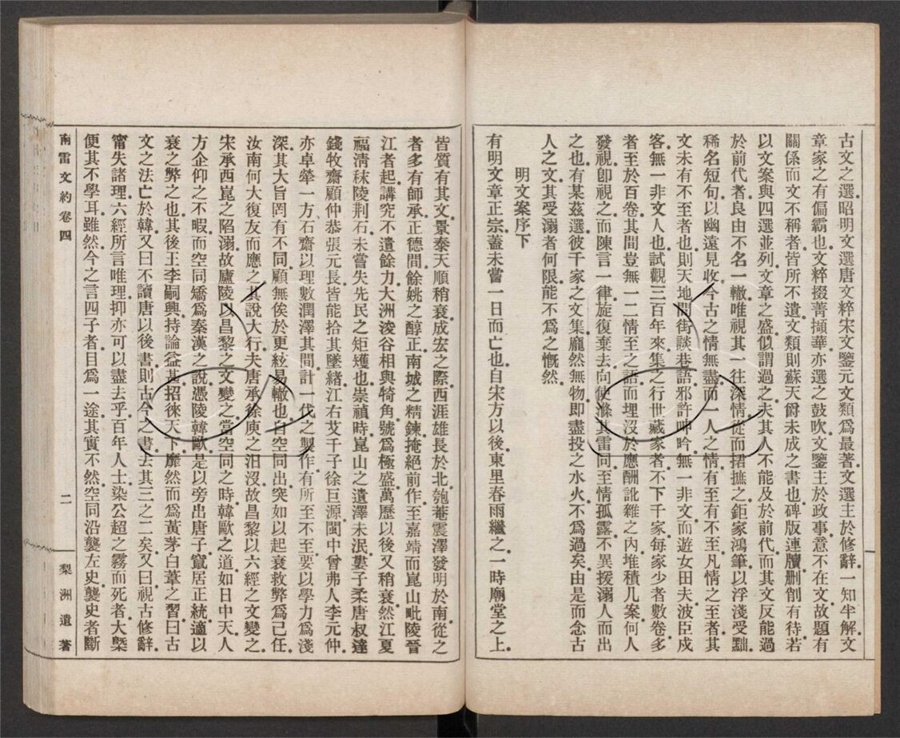 古文之選昭明文選唐文粹宋文鑒元文類爲最著文選主於修辭一知半解文
章家之有偏霸也文粹掇菁擷華亦選之鼓吹文鑒主於政事意不在文故題有
關係而文不稱者皆所不遺文類則蘇天爵未成之書也碑版連牘删削有待若
以文案與四選並列文章之盛似謂過之夫其人不能及於前代而其文反能過
於前代者良由不名一轍唯視其一往深情從而捃摭之鉅家鴻筆以浮淺受黜
稀名短句以幽遠見收今古之情無盡而一人之情有至有不至凡情之至者其
文未有不至者也則天地間街談巷語邪許呻吟無一非文而遊女田夫波臣戍
客無一非文人也試觀三百年來集之行世藏家者不下千家每家少者數卷多
者至於百卷其間豈無一二情至之語而埋沒於應酬訛雜之內堆積几案何人
發視卽視之而陳言一律旋復棄去向使滌其雷同至情孤露不異援溺人而出
之也有某茲選彼千家之文集龐然無物即盡投之水火不爲過矣由是而念古
人之文其受溺者何限能不爲之慨然
明文案序下
有明文章正宗蓋未嘗一日而亡也自宋方以後東里春雨繼之一時廟堂之上
皆質有其文景泰天順稍衰成宏之際西涯雄長於北匏菴震澤發明於南從之
者多有師承正德間餘姚之醇正南城之精鍊掩絕前作至嘉靖而崑山毗陵晉
江者起講究不遺餘力大洲浚谷相與犄角號爲極盛萬歷以後又稍衰然江夏
福清秣陵荆石未嘗失先民之矩矱也崇禎時崑山之遺澤未泯婁子柔唐叔達
錢牧齋顧仲恭張元長皆能拾其墜緒江右艾千子徐巨源閩中曾弗人李元仲
亦卓犖一方石齋以理數潤澤其間計一代之製作有所至不至要以學力爲淺
深其大旨罔有不同顧無俟於更絃易轍也自空同出突如以起衰救弊爲己任
汝南何大復友而應之其說大行夫唐承徐庾之汨沒故昌黎以六經之文變之
宋承西崑之陷溺故廬陵以昌黎之文變之當空同之時韓歐之道如日中天人
方企仰之不暇而空同矯爲秦漢之說憑陵韓歐是以旁出唐子竄居正統適以
衰之弊之也其後王李嗣興持論益甚招徠天下靡然而爲黃茅白葦之習曰古
文之法亡於韓又曰不讀唐以後書則古今之書去其三之二矣又曰視古修辭
甯失諸理六經所言唯理抑亦可以盡去乎百年人士染公超之霧而死者大槩
便其不學耳雖然今之言四子者目爲一途其實不然空同沿襲左史襲史者斷
南雷文約卷四
二
梨洲遺著